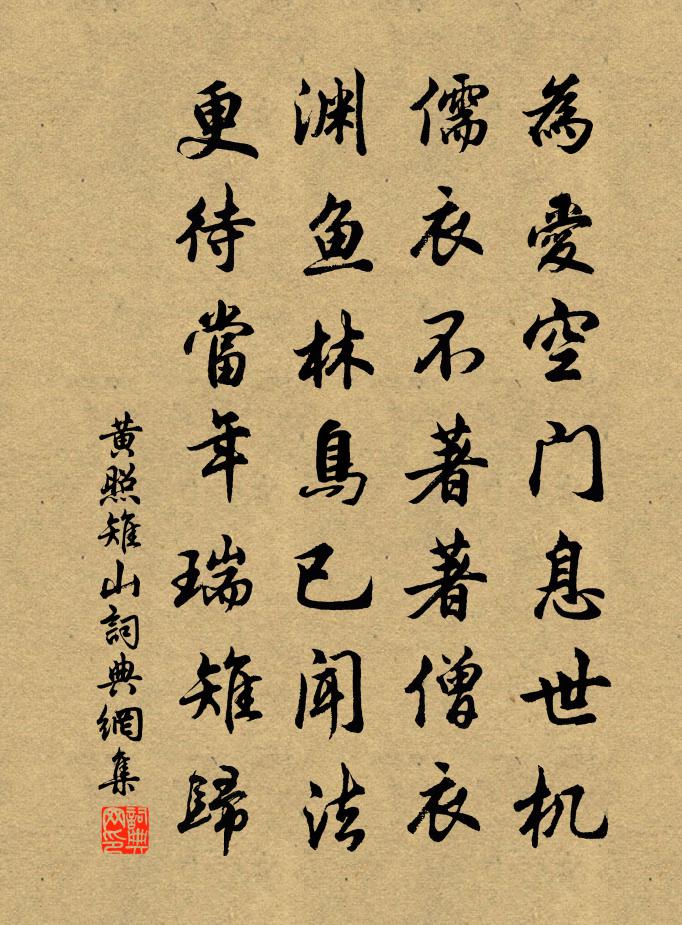 為愛空門息世机
儒衣不著著僧衣
渊鱼林鳥已聞法
更待當年瑞雉歸
黄照雉山詞典網集
詞典网印